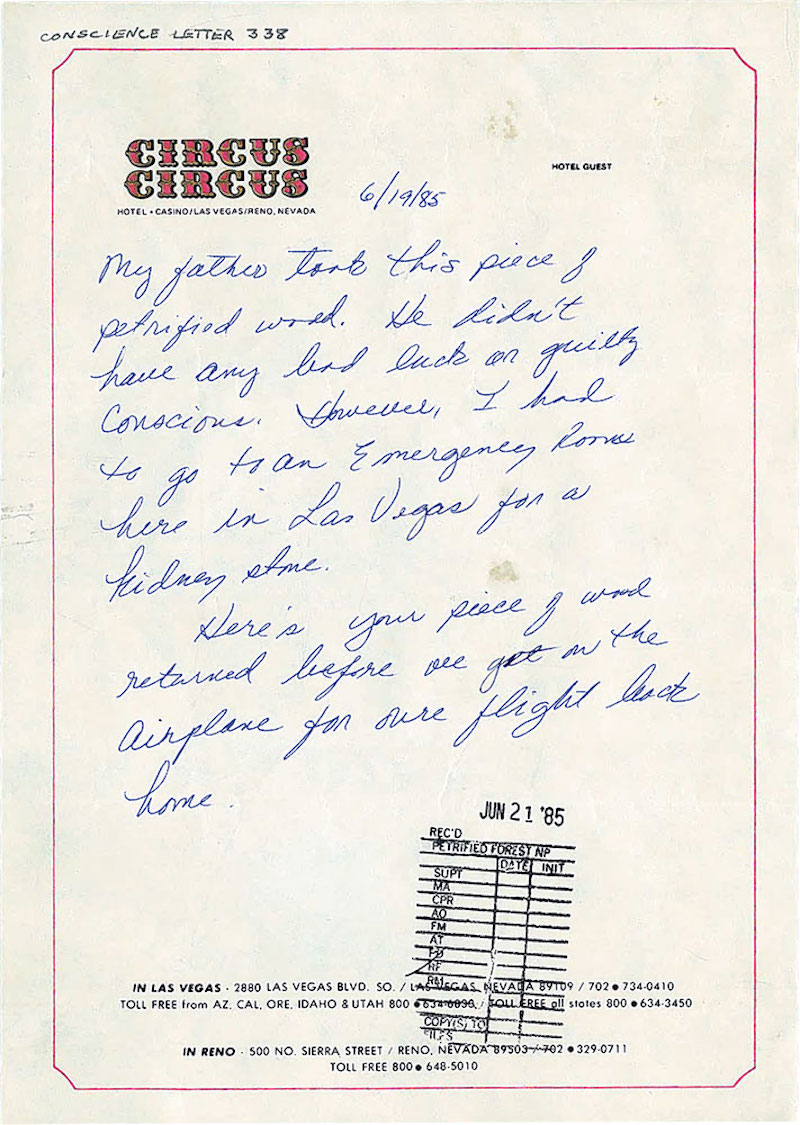 CONSCIENCE LETTER 338
CIRCUS
CIRCUS
HOTEL • CASINO/LAS VEGAS/RENO, NEVADA
HOTEL GUEST
6/19/85
My father took this piece of
petrified wood. He didn't
have any bad luck or guilty
Conscious. However, I had
to go to an Emergency Room
here in Las Vegas for a
kidney stone.
Here's your piece of wood
returned before we get on the
Airplane for oure flight back
home.
JUN 21 '85
REC'D
PETRIFIED FOREST NP
DATE INIT
SUPT
MA
CPR
AO
FM
AT
RF
RM
COPY(S) TO
FILES
IN LAS VEGAS · 2880 LAS VEGAS BLVD. SO. / LAS VEGAS, NEVADA 89109 / 702 • 734-0410
TOLL FREE from AZ, CAL, ORE, IDAHO & UTAH 800 • 634-6833 / TOLL FREE all states 800 • 634-3450
IN RENO · 500 NO. SIERRA STREET / RENO, NEVADA 89503 / 702 • 329-0711
TOLL FREE 800 • 648-5010